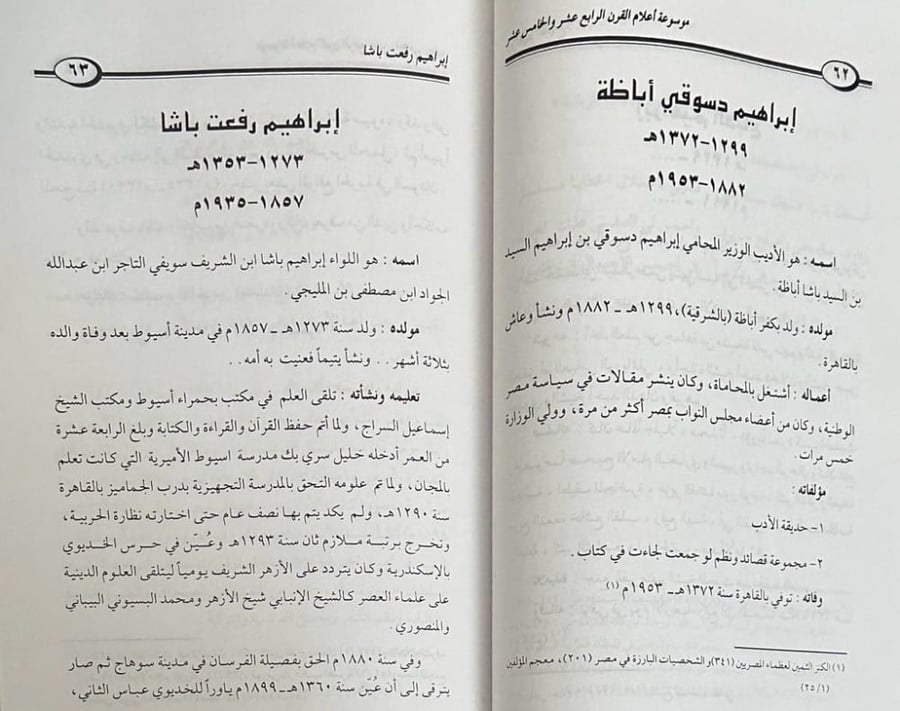 موسوعة أعلام القرن الرابع عشر والخامس عشر
٦٢
إبراهيم دسوقي أباظة
١٢٩٩-١٣٧٢هـ
١٨٨٢-١٩٥٣م
اسمه : هو الأديب الوزير المحامي إبراهيم دسوقي بن إبراهيم السيد
بن السيد باشا أباظة.
مولده : ولد بكفر أباظة (بالشرقية)، ١٢٩٩هـ ــ ١٨٨٢م ونشأ وعاش
بالقاهرة.
أعماله : أشتغل بالمحاماة، وكان ينشر مقالات في سياسة مصر
الوطنية، وكان من أعضاء مجلس النواب بمصر أكثر من مرة، وولي الوزارة
خمس مرات.
مؤلفاته :
١- حديقة الأدب
٢- مجموعة قصائد ونظم لو جمعت لجاءت في كتاب .
وفاته : توفي بالقاهرة سنة ١٣٧٢هـ ــ ١٩٥٣م (١)
(١) الكنز الثمين لعظماء المصريين (٣٤١) و الشخصيات البارزة في مصر (٢٠١)، معجم المؤلفين
(٢٥/١)
إبراهيم رفعت باشا
٦٣
إبراهيم رفعت باشا
١٢٧٣-١٣٥٣هـ
١٨٥٧-١٩٣٥م
اسمه : هو اللواء إبراهيم باشا ابن الشريف سويفي التاجر ابن عبدالله
الجواد ابن مصطفى بن المليجي.
مولده : ولد سنة ١٢٧٣هـ ــ ١٨٥٧م في مدينة أسيوط بعد وفاة والده
بثلاثة أشهر. . ونشأ يتيماً فعنيت به أمه . .
تعليمه ونشأته : تلقى العلم في مكتب بحمراء أسيوط ومكتب الشيخ
إسماعيل السراج، ولما أتم حفظ القرآن والقراءة والكتابة وبلغ الرابعة عشرة
من العمر أدخله خليل سري بك مدرسة اسيوط الأميرية التي كانت تعلم
بالمجان، ولما تم علومه التحق بالمدرسة التجهيزية بدرب الجماميز بالقاهرة
سنة ١٢٩٠هـ، ولم يكد يتم بها نصف عام حتى اختارته نظارة الحربية،
وتخرج برتبة ملازم ثان سنة ١٢٩٣هـ وعُيّن في حرس الخديوي
بالإسكندرية وكان يتردد على الأزهر الشريف يومياً ليتلقى العلوم الدينية
على علماء العصر كالشيخ الإنبابي شيخ الأزهر ومحمد البسيوني البيباني
والمنصوري.
وفي سنة ١٨٨٠م الحق بفصيلة الفرسان في مدينة سوهاج ثم صار
يترقى إلى أن عُيّن سنة ١٣٦٠هـ ــ ١٨٩٩م ياوراً للخديوي عباس الثاني،